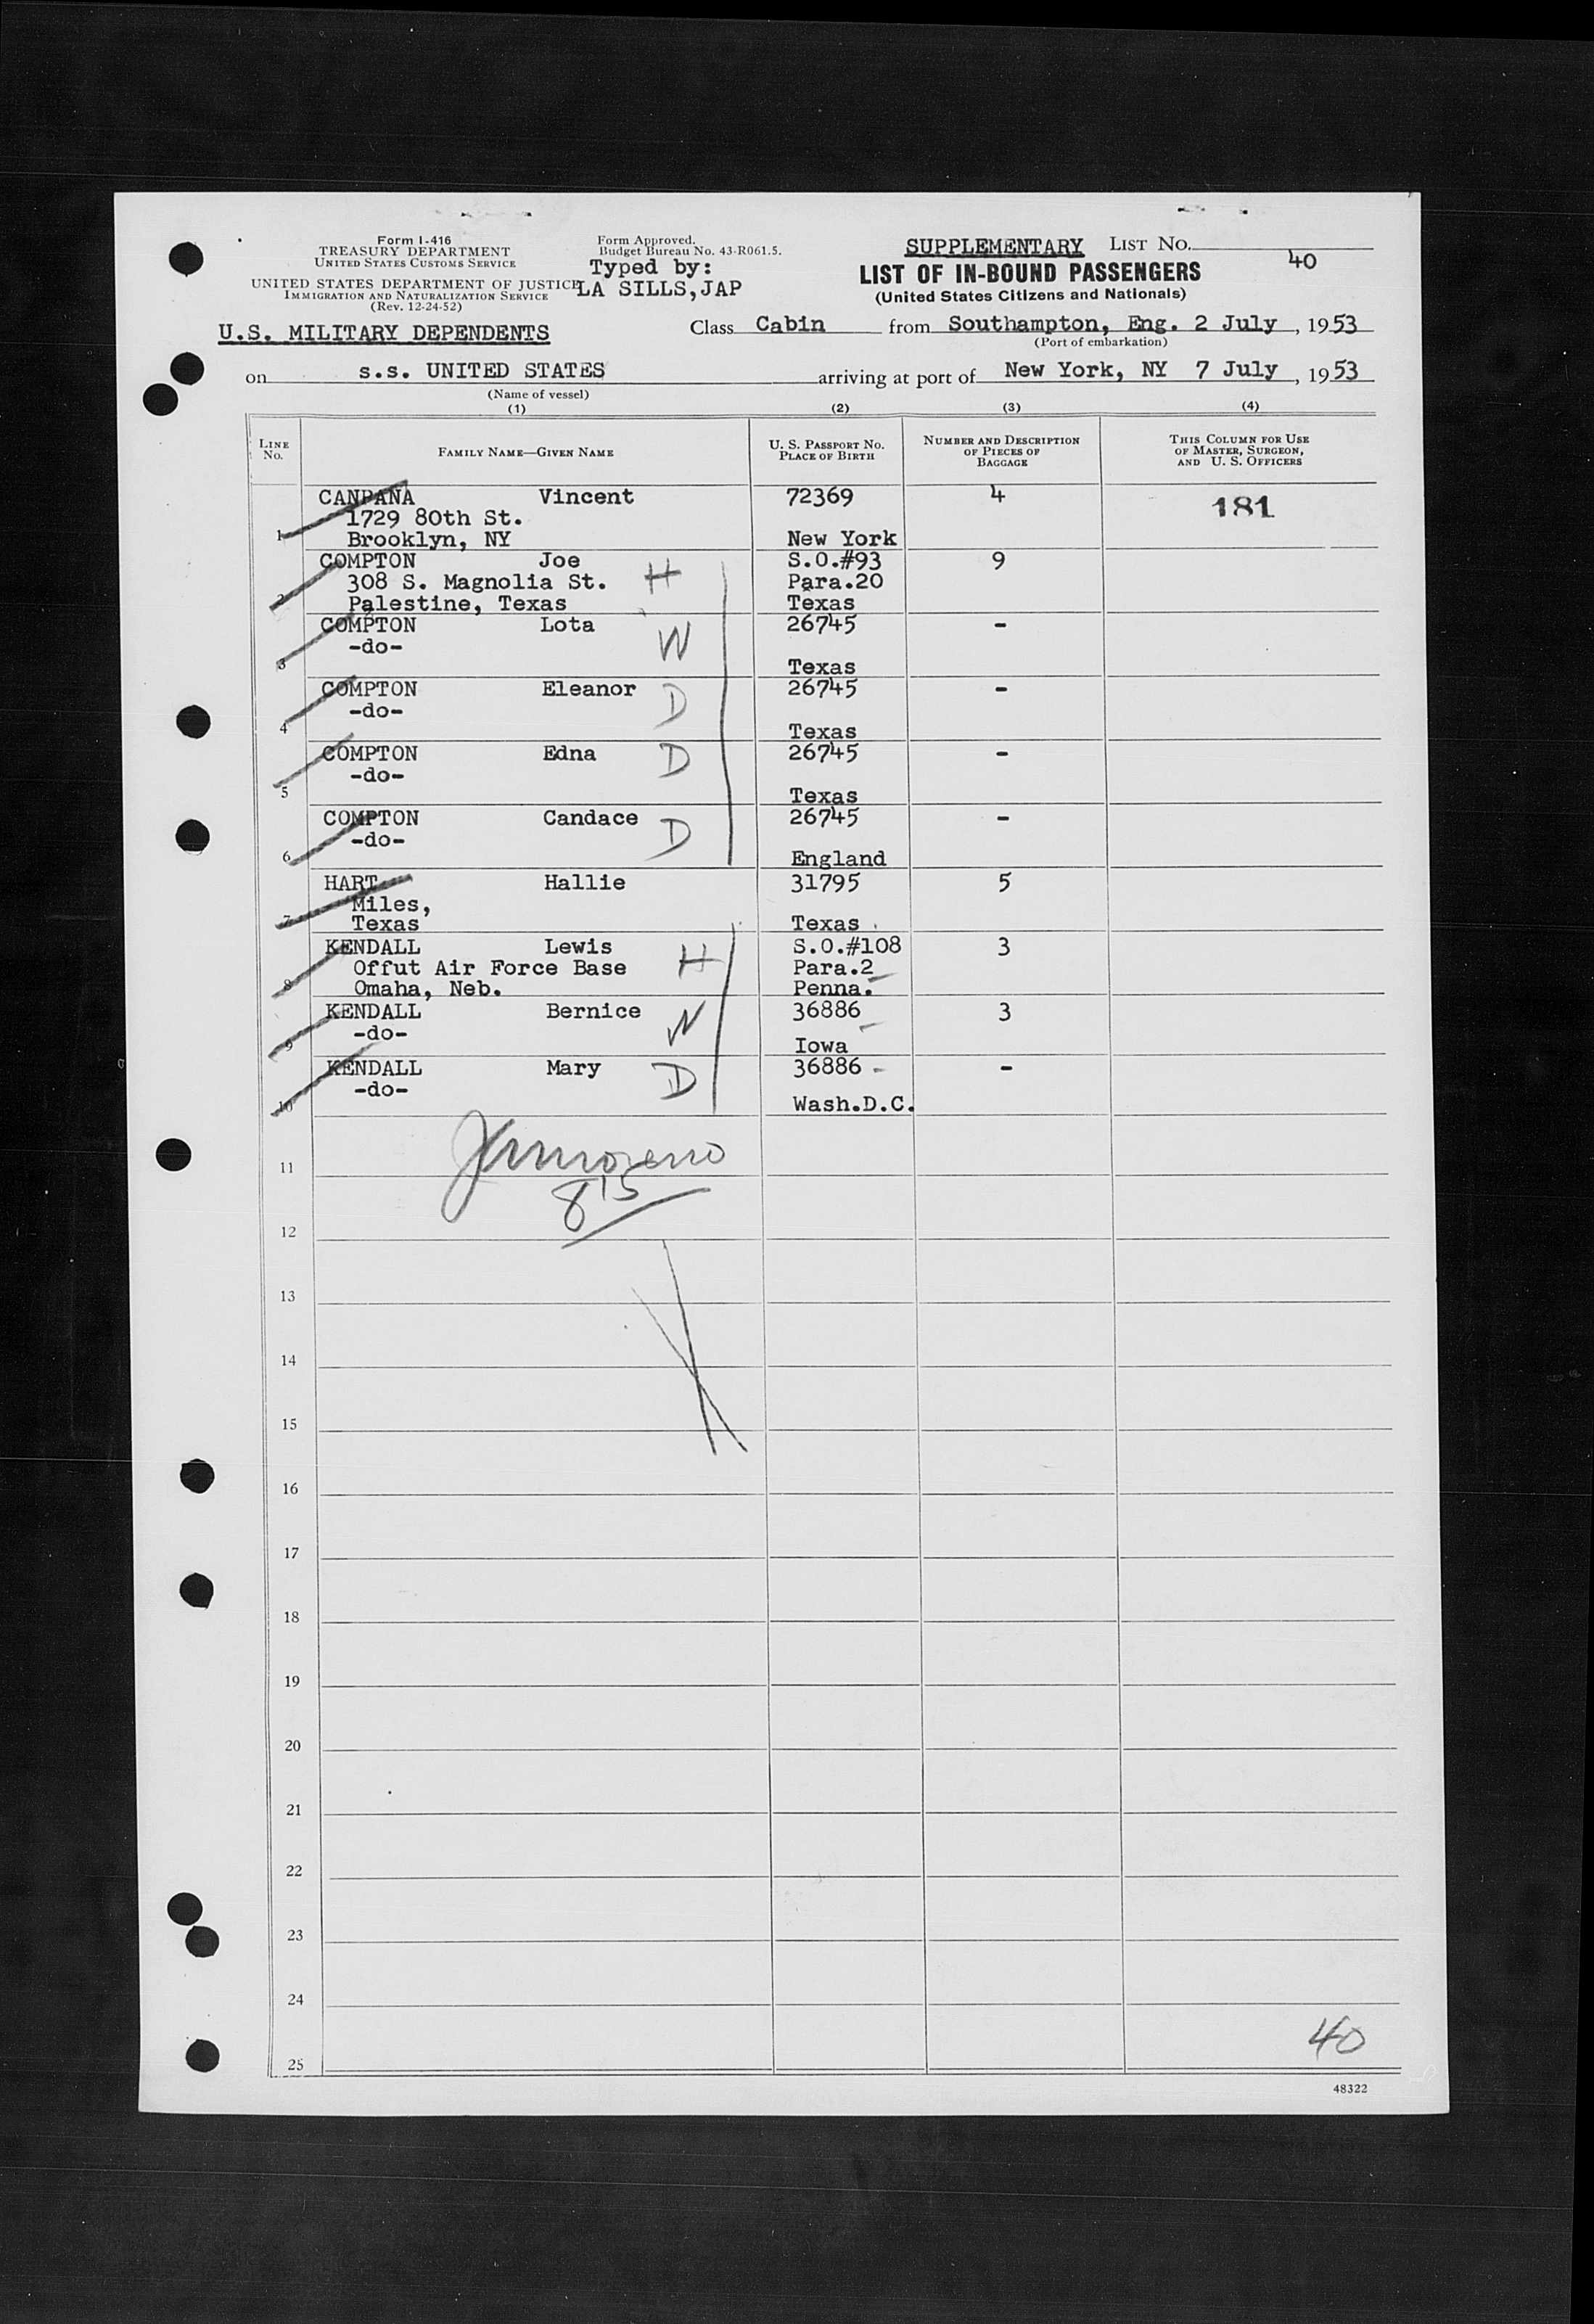 Form I-416
TREASURY DEPARTMENT
UNITED STATES CUSTOMS SERVICE
UNITED STATES DEPARTMENT OF JUSTICE
IMMIGRATION AND NATURALIZATION SERVICE
(Rev. 12-24-52)
Form Approved.
Budget Bureau No. 43-R061.5.
Typed by:
LA SILLS,JAP
SUPPLEMENTARY LIST No.
40
LIST OF IN-BOUND PASSENGERS
(United States Citizens and Nationals)
U.S. MILITARY DEPENDENTS
Class Cabin from Southampton, Eng. 2 July, 1953
(Port of embarkation)
on s.s. UNITED STATES arriving at port of New York, NY 7 July, 1953
(Name of vessel)
(1) (2) (3) (4)
LINE No. FAMILY NAME—GIVEN NAME U. S. PASSPORT No. PLACE OF BIRTH NUMBER AND DESCRIPTION OF PIECES OF BAGGAGE THIS COLUMN FOR USE OF MASTER, SURGEON, AND U. S. OFFICERS
CANPANA Vincent 72369 4 181
1729 80th St.
1 Brooklyn, NY New York
COMPTON Joe S.O.#93 9
308 S. Magnolia St. H Para.20
2 Palestine, Texas Texas
COMPTON Lota 26745 -
-do- W
3 Texas
COMPTON Eleanor 26745 -
-do- D
4 Texas
COMPTON Edna D 26745 -
-do-
5 Texas
COMPTON Candace 26745 -
-do- D
6 England
HART Hallie 31795 5
Miles,
7 Texas Texas
KENDALL Lewis S.O.#108 3
Offut Air Force Base H Para.2
8 Omaha, Neb. Penna.
KENDALL Bernice 36886 3
-do- W
9 Iowa
KENDALL Mary 36886 -
-do- D
10 Wash.D.C.
11
815
12
13
14
15
16
17
18
19
20
21
22
23
24
40
25
48322